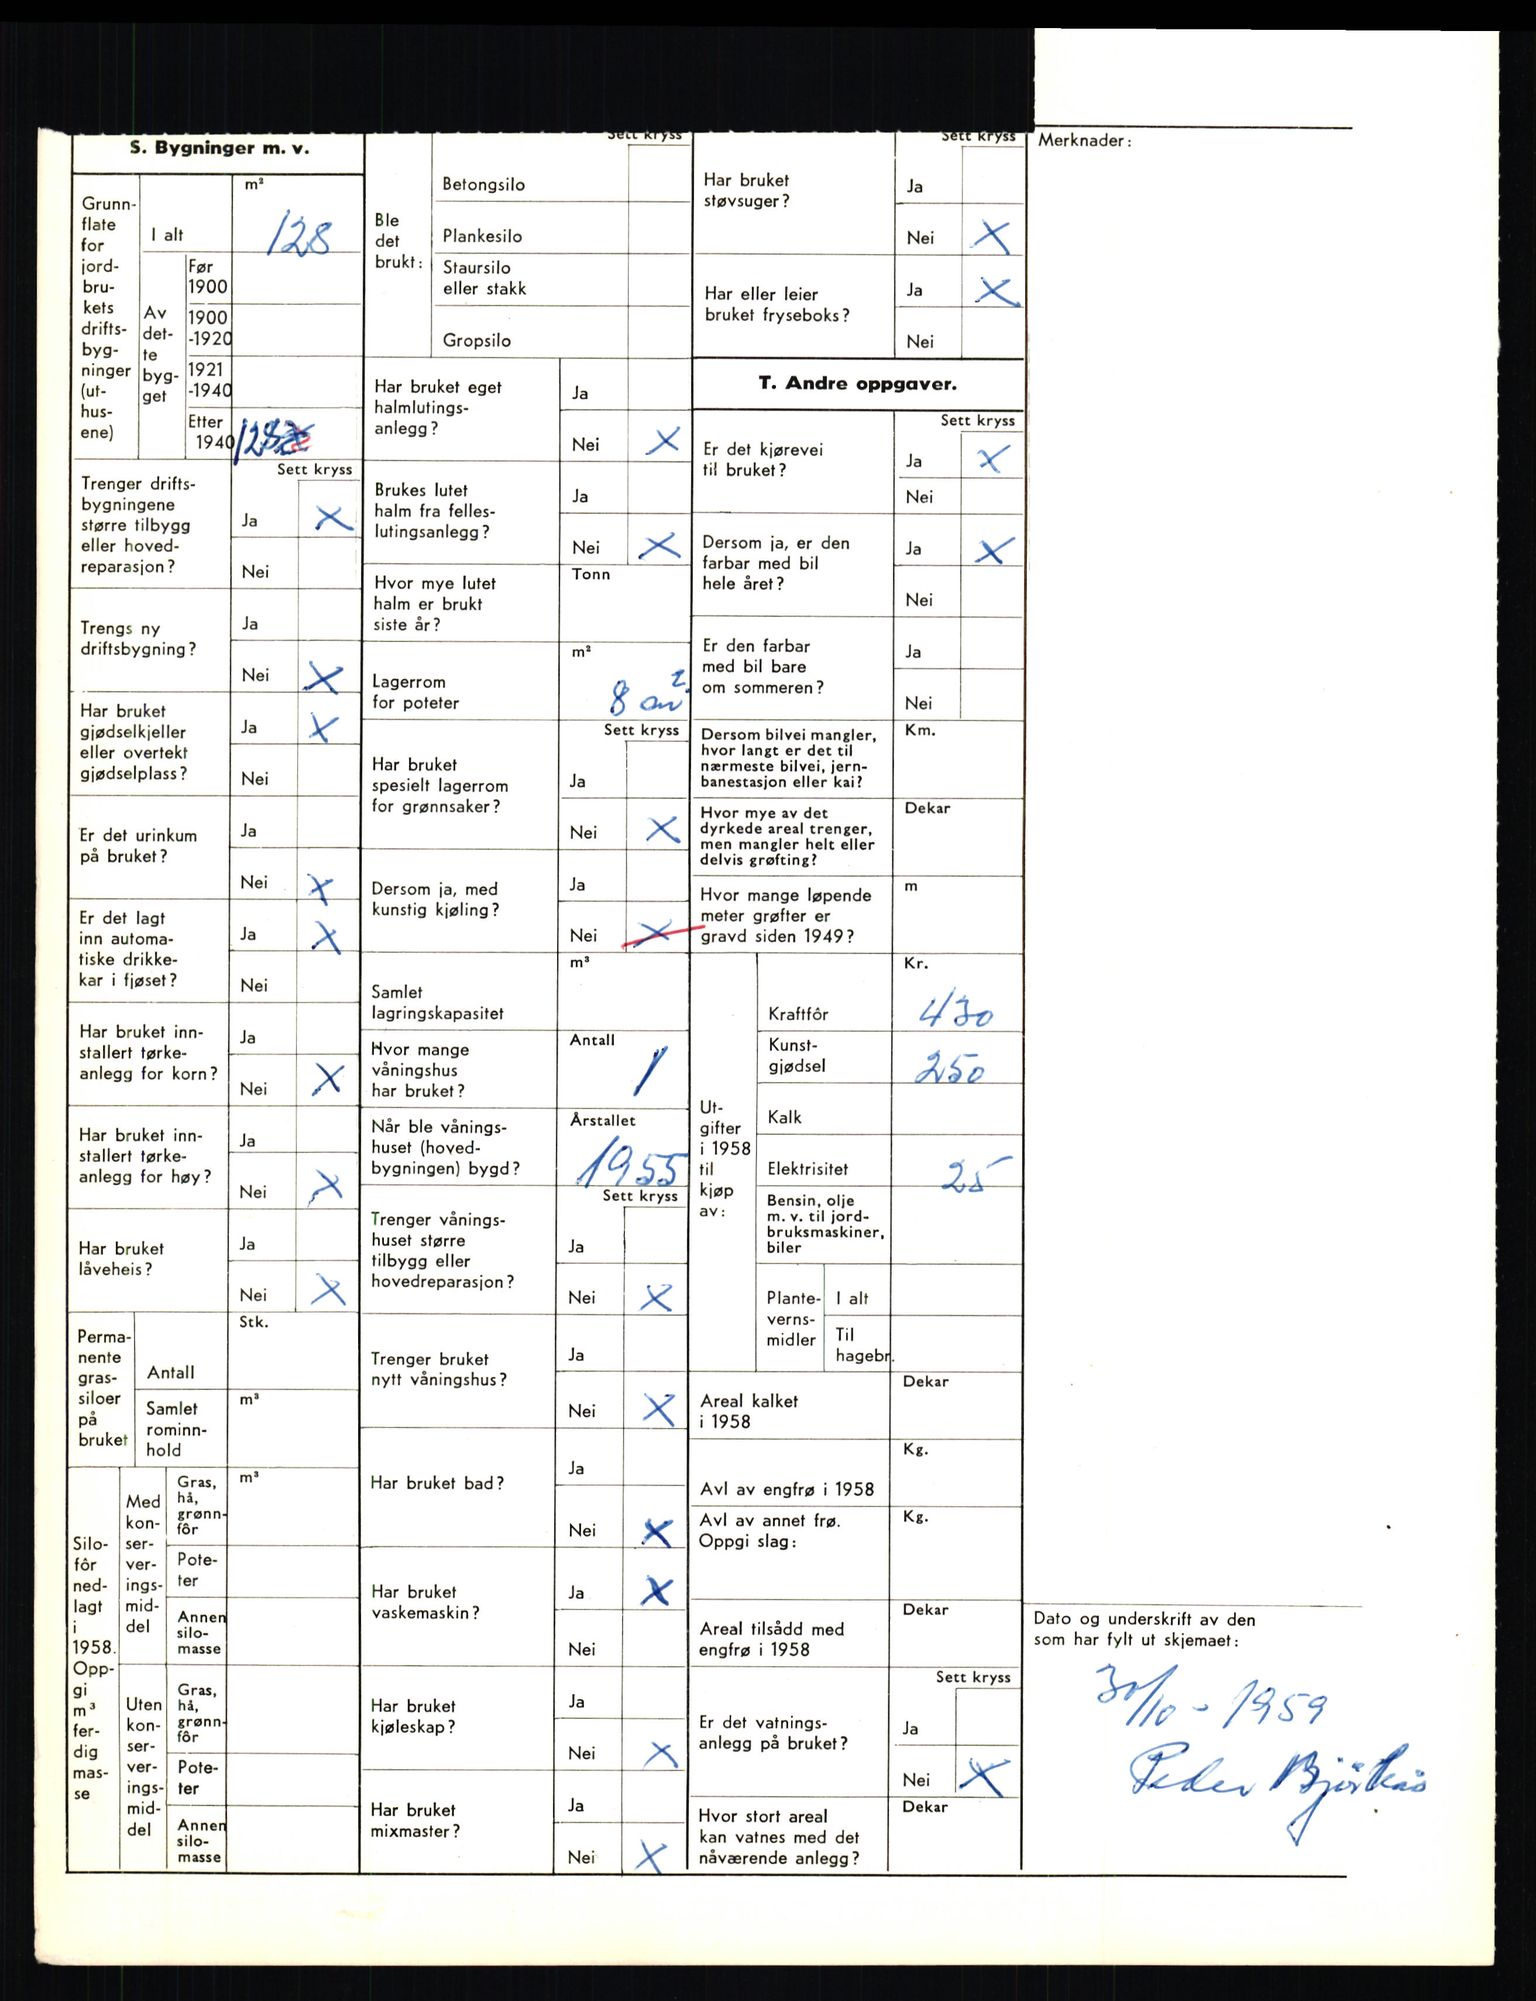 S. Bygninger m. v.
Grunn-
flate
for
jord-
bru-
kets
drifts-
byg-
ninger
(ut-
hus-
ene)
I alt
m²
128
Av
det-
te
byg-
get
Før
1900
1900
-1920
1921
-1940
Etter
1940
128
Sett kryss
Trenger drifts-
bygningene
større tilbygg
eller hoved-
reparasjon?
Ja X
Nei
Trengs ny
driftsbygning?
Ja
Nei X
Har bruket
gjødselkjeller
eller overtekt
gjødselplass?
Ja X
Nei
Er det urinkum
på bruket?
Ja
Nei X
Er det lagt
inn automa-
tiske drikke-
kar i fjøset?
Ja X
Nei
Har bruket inn-
stallert tørke-
anlegg for korn?
Ja
Nei X
Har bruket inn-
stallert tørke-
anlegg for høy?
Ja
Nei X
Har bruket
låveheis?
Ja
Nei X
Perma-
nente
gras-
siloer
på
bruket
Antall
Stk.
Samlet
rominn-
hold
m³
Silo-
fôr
ned-
lagt
i
1958.
Opp-
gi
m³
fer-
dig
mas-
se
Med
kon-
ser-
ver-
ings-
mid-
del
Gras,
hå,
grønn-
fôr
m³
Pote-
ter
Annen
silo-
masse
Uten
kon-
ser-
ver-
ings-
mid-
del
Gras,
hå,
grønn-
fôr
Pote-
ter
Annen
silo-
masse
Sett kryss
Ble
det
brukt:
Betongsilo
Plankesilo
Staursilo
eller stakk
Gropsilo
Har bruket eget
halmlutings-
anlegg?
Ja
Nei X
Brukes lutet
halm fra felles-
lutingsanlegg?
Ja
Nei X
Hvor mye lutet
halm er brukt
siste år?
Tonn
Lagerrom
for poteter
m²
8 m²
Sett kryss
Har bruket
spesielt lagerrom
for grønnsaker?
Ja
Nei X
Dersom ja, med
kunstig kjøling?
Ja
Nei X
Samlet
lagringskapasitet
m³
Hvor mange
våningshus
har bruket?
Antall
1
Når ble vånings-
huset (hoved-
bygningen) bygd?
Årstallet
1955
Sett kryss
Trenger vånings-
huset større
tilbygg eller
hovedreparasjon?
Ja
Nei X
Trenger bruket
nytt våningshus?
Ja
Nei X
Har bruket bad?
Ja
Nei X
Har bruket
vaskemaskin?
Ja X
Nei
Har bruket
kjøleskap?
Ja
Nei X
Har bruket
mixmaster?
Ja
Nei X
Sett kryss
Har bruket
støvsuger?
Ja
Nei X
Har eller leier
bruket fryseboks?
Ja X
Nei
T. Andre oppgaver.
Sett kryss
Er det kjørevei
til bruket?
Ja X
Nei
Dersom ja, er den
farbar med bil
hele året?
Ja X
Nei
Er den farbar
med bil bare
om sommeren?
Ja
Nei
Dersom bilvei mangler,
hvor langt er det til
nærmeste bilvei, jern-
banestasjon eller kai?
Km.
Hvor mye av det
dyrkede areal trenger,
men mangler helt eller
delvis grøfting?
Dekar
Hvor mange løpende
meter grøfter er
gravd siden 1949?
m
Ut-
gifter
i 1958
til
kjøp
av:
Kr.
Kraftfôr 430
Kunst-
gjødsel 250
Kalk
Elektrisitet 25
Bensin, olje
m. v. til jord-
bruksmaskiner,
biler
Plante-
verns-
midler
I alt
Til
hagebr.
Areal kalket
i 1958
Dekar
Avl av engfrø i 1958
Kg.
Avl av annet frø.
Oppgi slag:
Kg.
Areal tilsådd med
engfrø i 1958
Dekar
Sett kryss
Er det vatnings-
anlegg på bruket?
Ja
Nei X
Hvor stort areal
kan vatnes med det
nåværende anlegg?
Dekar
Merknader:
Dato og underskrift av den
som har fylt ut skjemaet:
30/10 - 1959
Peder Bjørkås